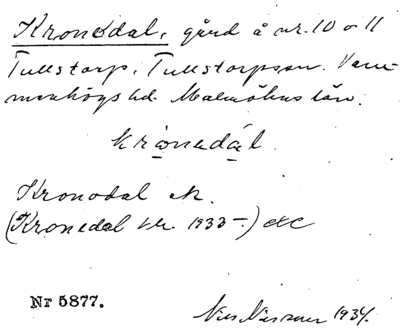 Kronodal, gård å nr. 10 o 11
Tullstorp, Tullstorpssn. Vem-
menhögs hd. Malmöhus län.
krånedál
Kronodal ek.
(Kronedal tlr. 1933-) etc
Nr 5877.
Nils 1934.